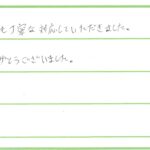 も丁寧な対応していただきました。
がとうございました。